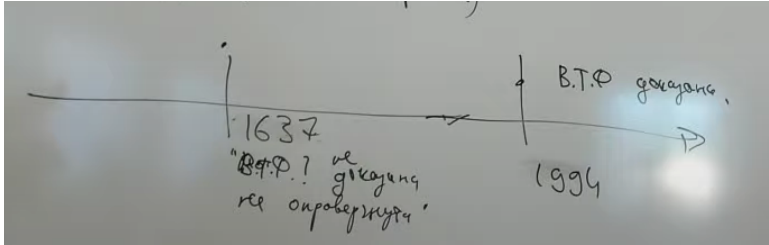 В.Т.Ф доказана.
1637
"В.Т.Ф.? не
доказана
не опровергнута"
1994